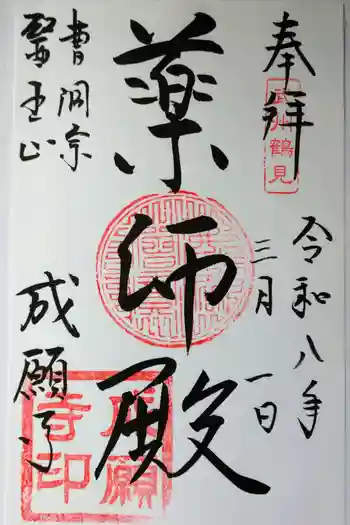 奉拝
武州鶴見
令和八年
三月一日
薬師殿
曹洞宗
醫王山
成願寺
成願寺印